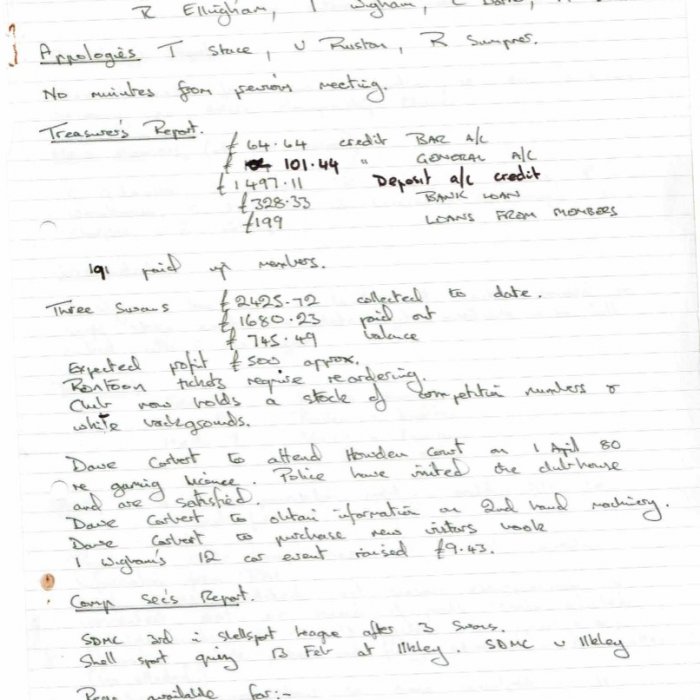 R Ellingham, I Wigham,
Appologies T Stace, V Ruston, R Sumpner.
No minutes from previous meeting.
Treasurer's Report.
£64.64 credit BAR A/C
£ 101.44 " GENERAL A/C
£1497.11 Deposit a/c credit
£328.33 BANK LOAN
£199 LOANS FROM MEMBERS
191 paid up members.
Three Swans £2425.72 collected to date.
£1680.23 paid out
£745.49 balance
Expected profit £500 approx.
Pontoon tickets require reordering.
Club now holds a stock of competition numbers &
white backgrounds.
Dave Corbert to attend Howden Court on 1 April 80
re gaming licence. Police have visited the clubhouse
and are satisfied.
Dave Corbert to obtain information on 2nd hand machinery.
Dave Corbert to purchase new visitors book
I Wigham's 12 car event raised £9.43.
Comp Sec's Report.
SDMC 3rd in Shellsport league after 3 Swans.
Shell sport quiz 13 Feb at Ilkley. SDMC v Ilkley
available for:-